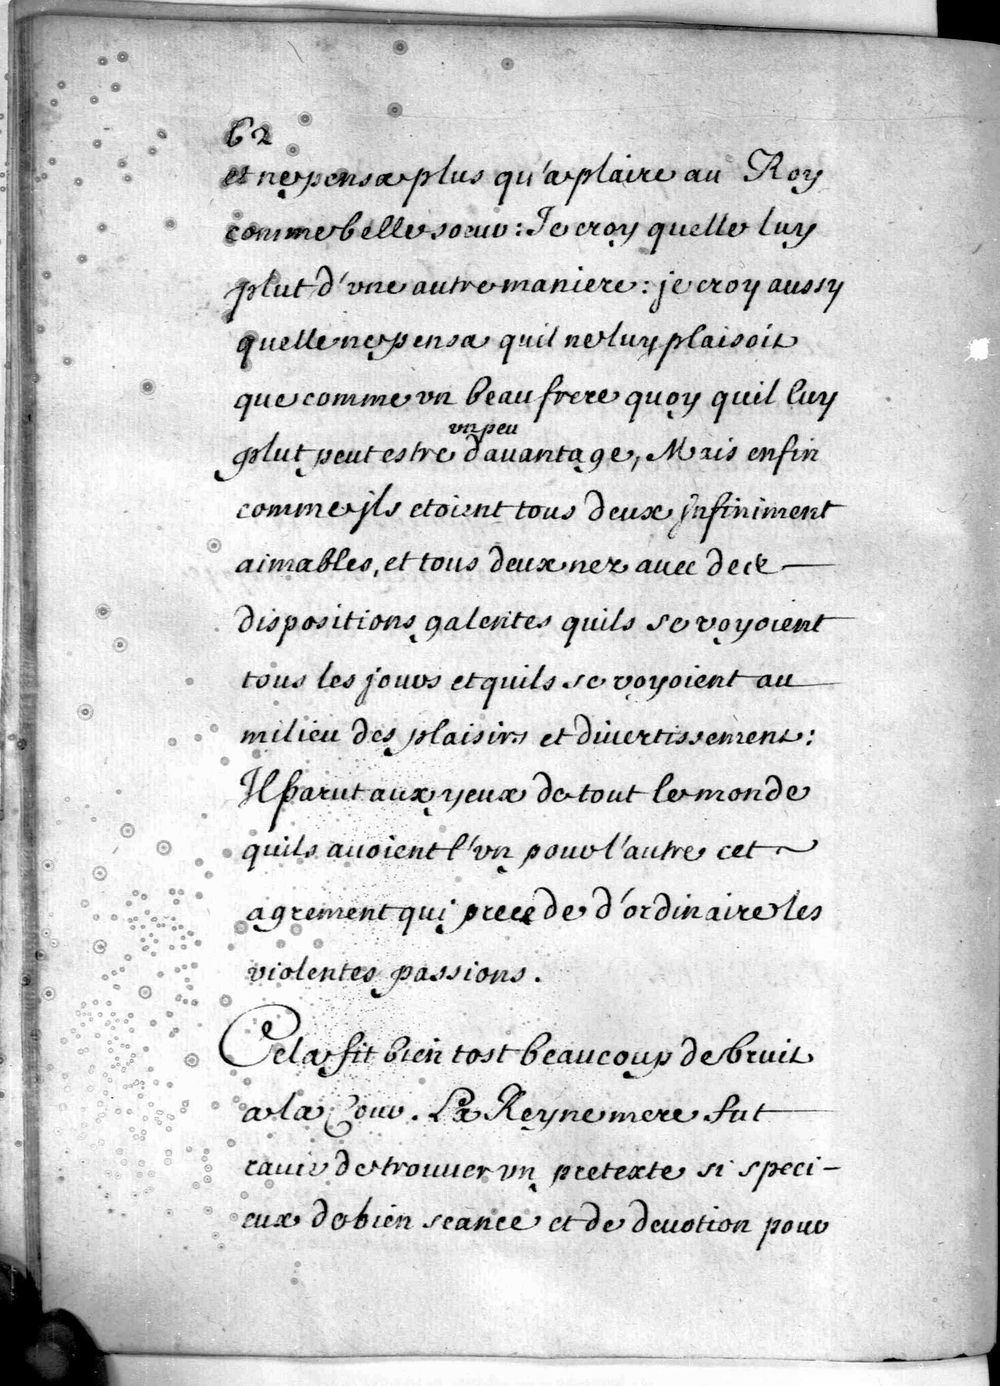 62
et ne pensa plus qu'a plaire au Roy
comme belle soeur : Je croy quelle luy
plut d'vne autre maniere : je croy aussy
quelle ne pensa quil ne luy plaisoit
que comme vn beau frere quoy quil luy
vn peu
plut peut estre davantage, Mais enfin
comme jls etoient tous deux jnfiniment
aimables, et tous deux nez avec des
dispositions galentes quils se voyoient
tous les jours et quils se voyoient au
milieu des plaisirs et divertissement :
Jl parut aux yeux de tout le monde
quils avoient l'vn pour l'autre cet
agrement qui precede d'ordinaire les
violentes passions.
Cela fit bien tost beaucoup de bruit
a la Cour. La Reyne mere fut
ravie de trouver vn pretexte si speci-
eux de bien seance et de devotion pour